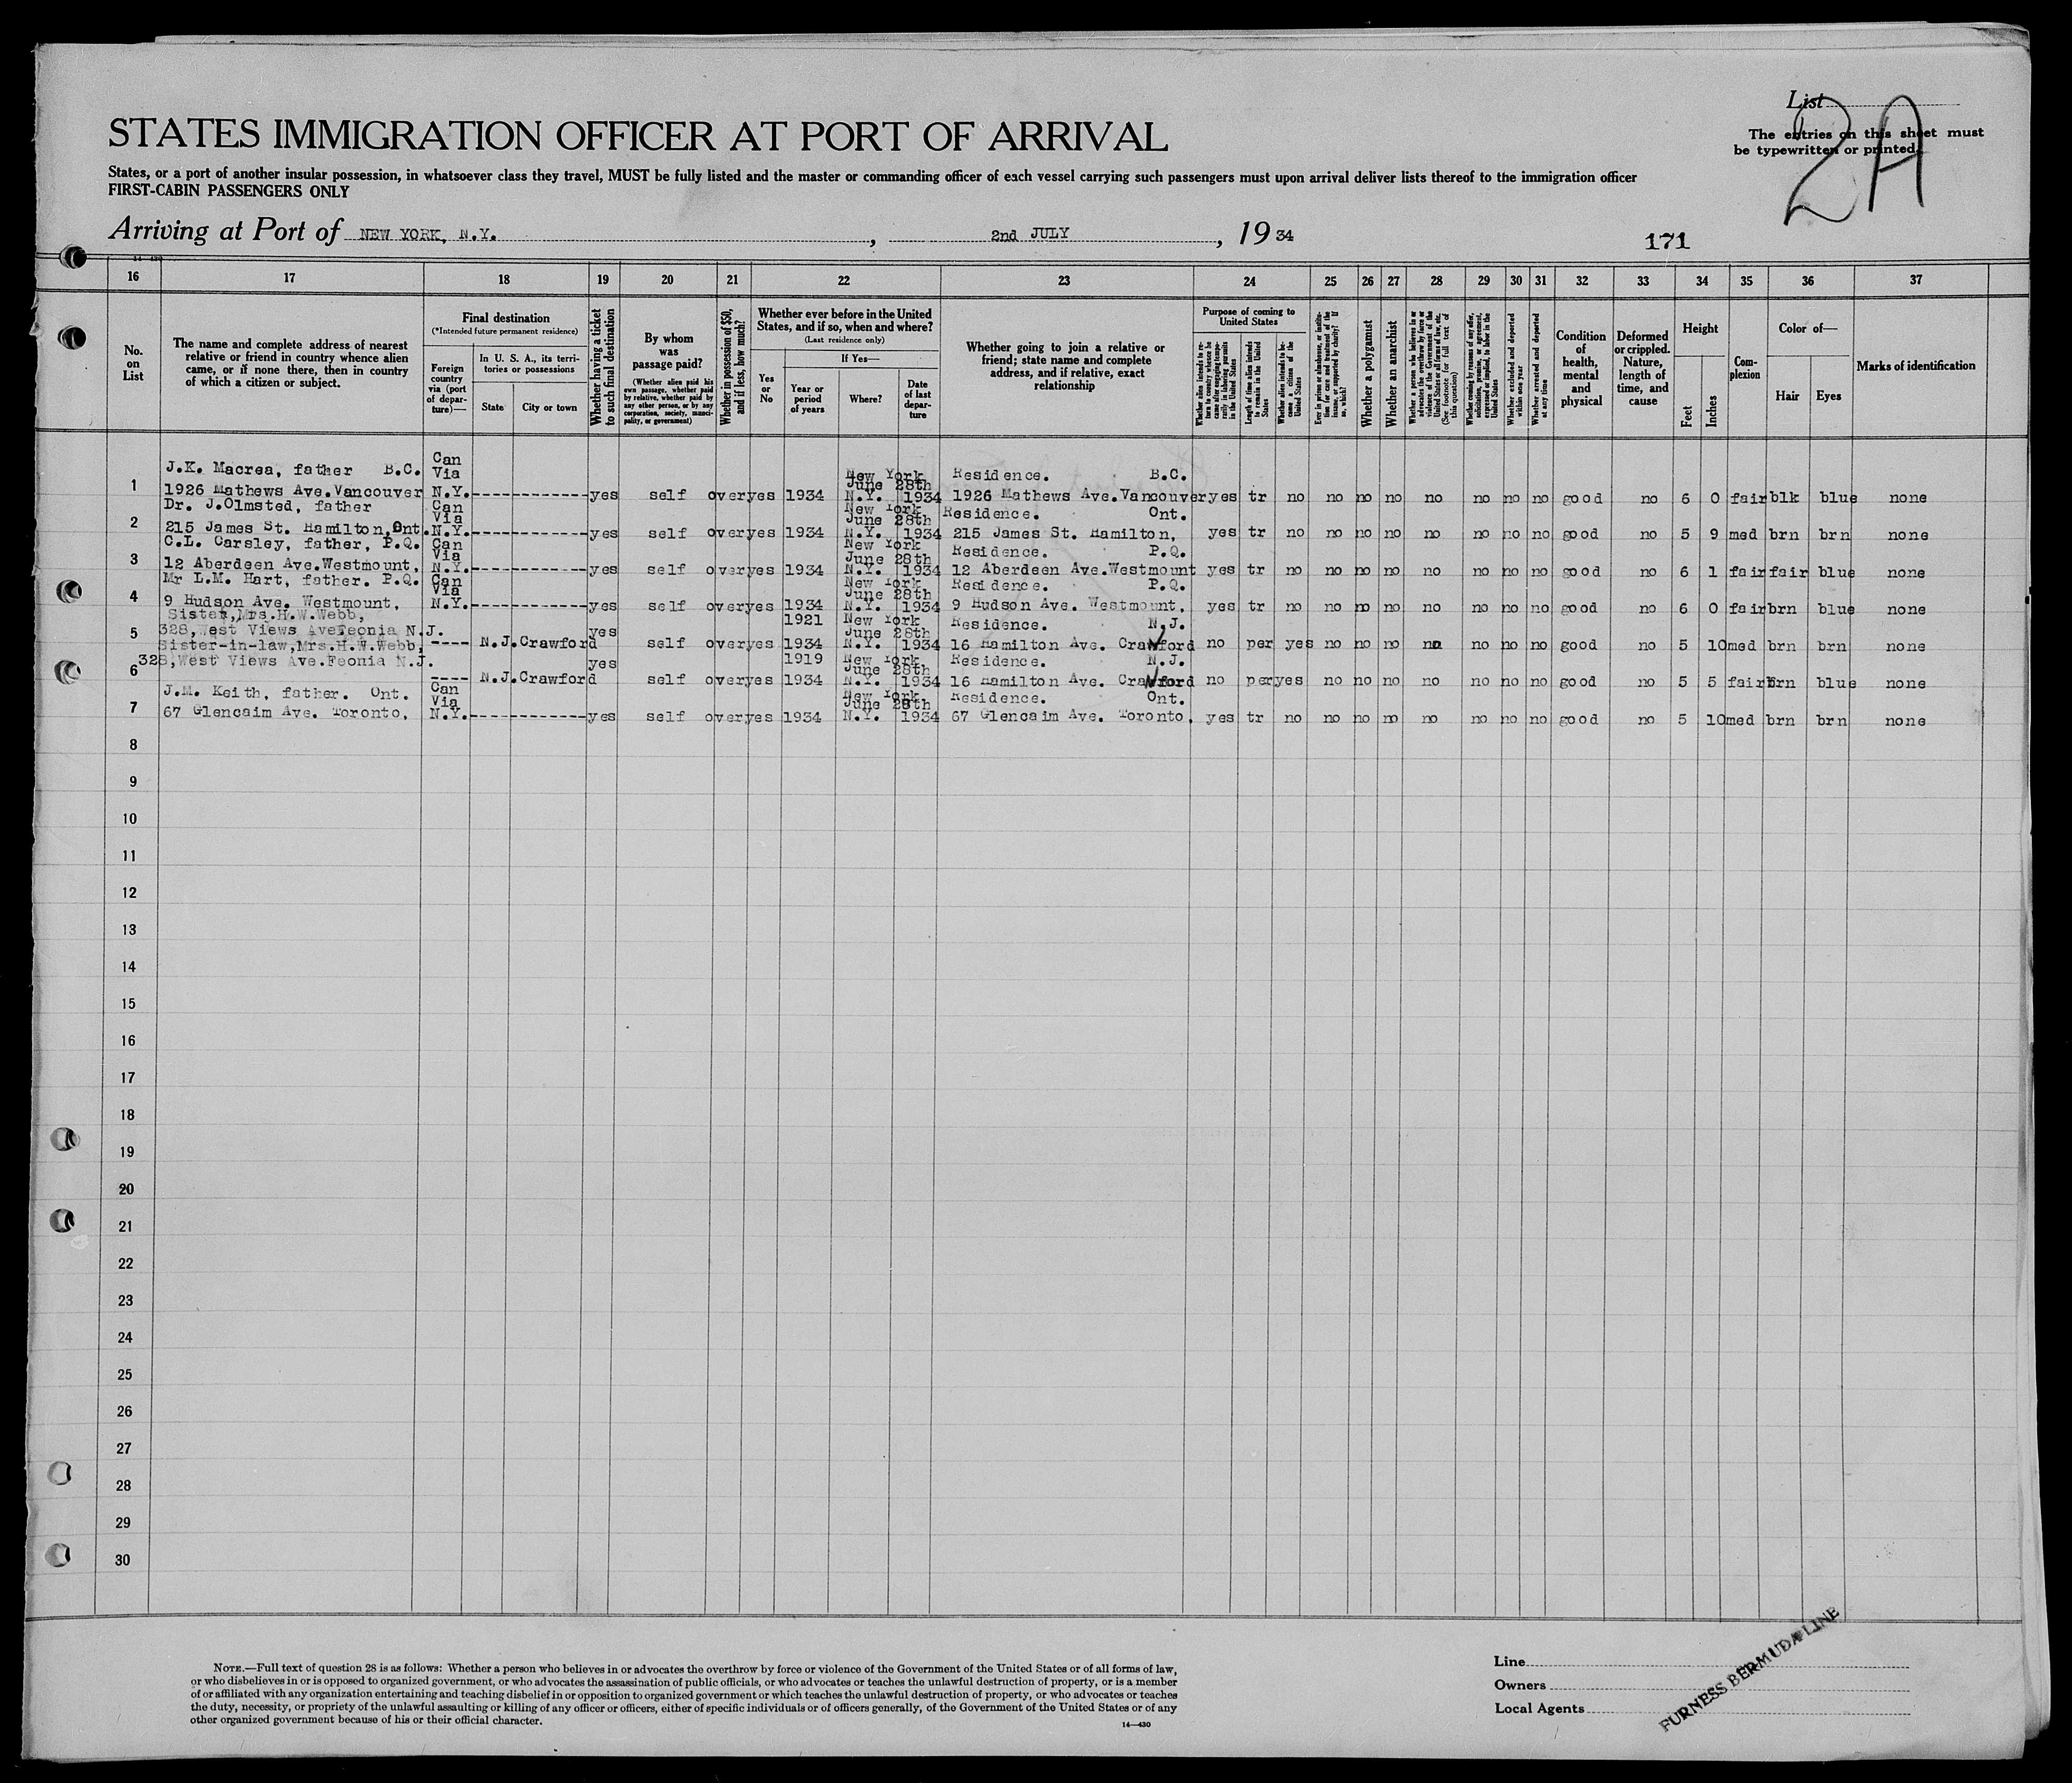 List
The entries on this sheet must
be typewritten or printed.
2A
STATES IMMIGRATION OFFICER AT PORT OF ARRIVAL
States, or a port of another insular possession, in whatsoever class they travel, MUST be fully listed and the master or commanding officer of each vessel carrying such passengers must upon arrival deliver lists thereof to the immigration officer
FIRST-CABIN PASSENGERS ONLY
Arriving at Port of NEW YORK, N.Y. , 2nd JULY , 19 34
171
16 17 18 19 20 21 22 23 24 25 26 27 28 29 30 31 32 33 34 35 36 37
No. on List
The name and complete address of nearest relative or friend in country whence alien came, or if none there, then in country of which a citizen or subject.
Final destination
(*Intended future permanent residence)
Foreign country via (port of departure)—
In U. S. A., its territories or possessions
State
City or town
Whether having a ticket to such final destination
By whom was passage paid?
(Whether alien paid his own passage, whether paid by relative, whether paid by any other person, or by any corporation, society, municipality, or government)
Whether in possession of $50, and if less, how much?
Whether ever before in the United States, and if so, when and where?
(Last residence only)
Yes or No
If Yes—
Year or period of years
Where?
Date of last departure
Whether going to join a relative or friend; state name and complete address, and if relative, exact relationship
Purpose of coming to United States
Length of time alien intends to remain in the United States
Whether alien intends to become a citizen of the United States
Whether a polygamist
Whether an anarchist
Whether excluded and deported within one year
Whether arrested and deported at any time
Condition of health, mental and physical
Deformed or crippled. Nature, length of time, and cause
Height
Feet
Inches
Complexion
Color of—
Hair
Eyes
Marks of identification
1 J.K. Macrea, father B.C. Can Via New York June 28th Residence. B.C.
1926 Mathews Ave.Vancouver N.Y.------------yes self over yes 1934 N.Y. 1934 1926 Mathews Ave.Vancouver yes tr no no no no no no no no good no 6 0 fair blk blue none
2 Dr. J.Olmsted, father Can Via New York June 28th Residence. Ont.
215 James St. Hamilton,Ont. N.Y.------------yes self over yes 1934 N.Y. 1934 215 James St. Hamilton, yes tr no no no no no no no no good no 5 9 med brn brn none
3 C.L. Carsley, father, P.Q. Can Via New York June 28th Residence. P.Q.
12 Aberdeen Ave.Westmount, N.Y.------------yes self over yes 1934 N.Y. 1934 12 Aberdeen Ave.Westmount yes tr no no no no no no no no good no 6 1 fair fair blue none
4 Mr L.M. Hart, father. P.Q. Can Via New York June 28th Residence. P.Q.
9 Hudson Ave. Westmount, N.Y.------------yes self over yes 1934 N.Y. 1934 9 Hudson Ave. Westmount, yes tr no no no no no no no no good no 6 0 fair brn blue none
5 Sister,Mrs.H.W.Webb, 1921 New York June 28th Residence. N.J.
328,West Views Ave Feonia N.J. ---- N.J. Crawford yes self over yes 1934 N.Y. 1934 16 Hamilton Ave. Crawford no per yes no no no no no no no good no 5 10 med brn brn none
6 Sister-in-law,Mrs.H.W.Webb, 1919 New York June 28th Residence. N.J.
328,West Views Ave.Feonia N.J. ---- N.J. Crawford yes self over yes 1934 N.Y. 1934 16 Hamilton Ave. Crawford no per yes no no no no no no no good no 5 5 fair brn blue none
7 J.M. Keith, father. Ont. Can Via New York June 28th Residence. Ont.
67 Glencaim Ave. Toronto, N.Y.------------yes self over yes 1934 N.Y. 1934 67 Glencaim Ave. Toronto, yes tr no no no no no no no no good no 5 10 med brn brn none
8
9
10
11
12
13
14
15
16
17
18
19
20
21
22
23
24
25
26
27
28
29
30
NOTE.—Full text of question 28 is as follows: Whether a person who believes in or advocates the overthrow by force or violence of the Government of the United States or of all forms of law,
or who disbelieves in or is opposed to organized government, or who advocates the assassination of public officials, or who advocates or teaches the unlawful destruction of property, or is a member
of or affiliated with any organization entertaining and teaching disbelief in or opposition to organized government or which teaches the unlawful destruction of property, or who advocates or teaches
the duty, necessity, or propriety of the unlawful assaulting or killing of any officer or officers, either of specific individuals or of officers generally, of the Government of the United States or of any
other organized government because of his or their official character.
14—430
Line
Owners
Local Agents
FURNESS BERMUDA LINE